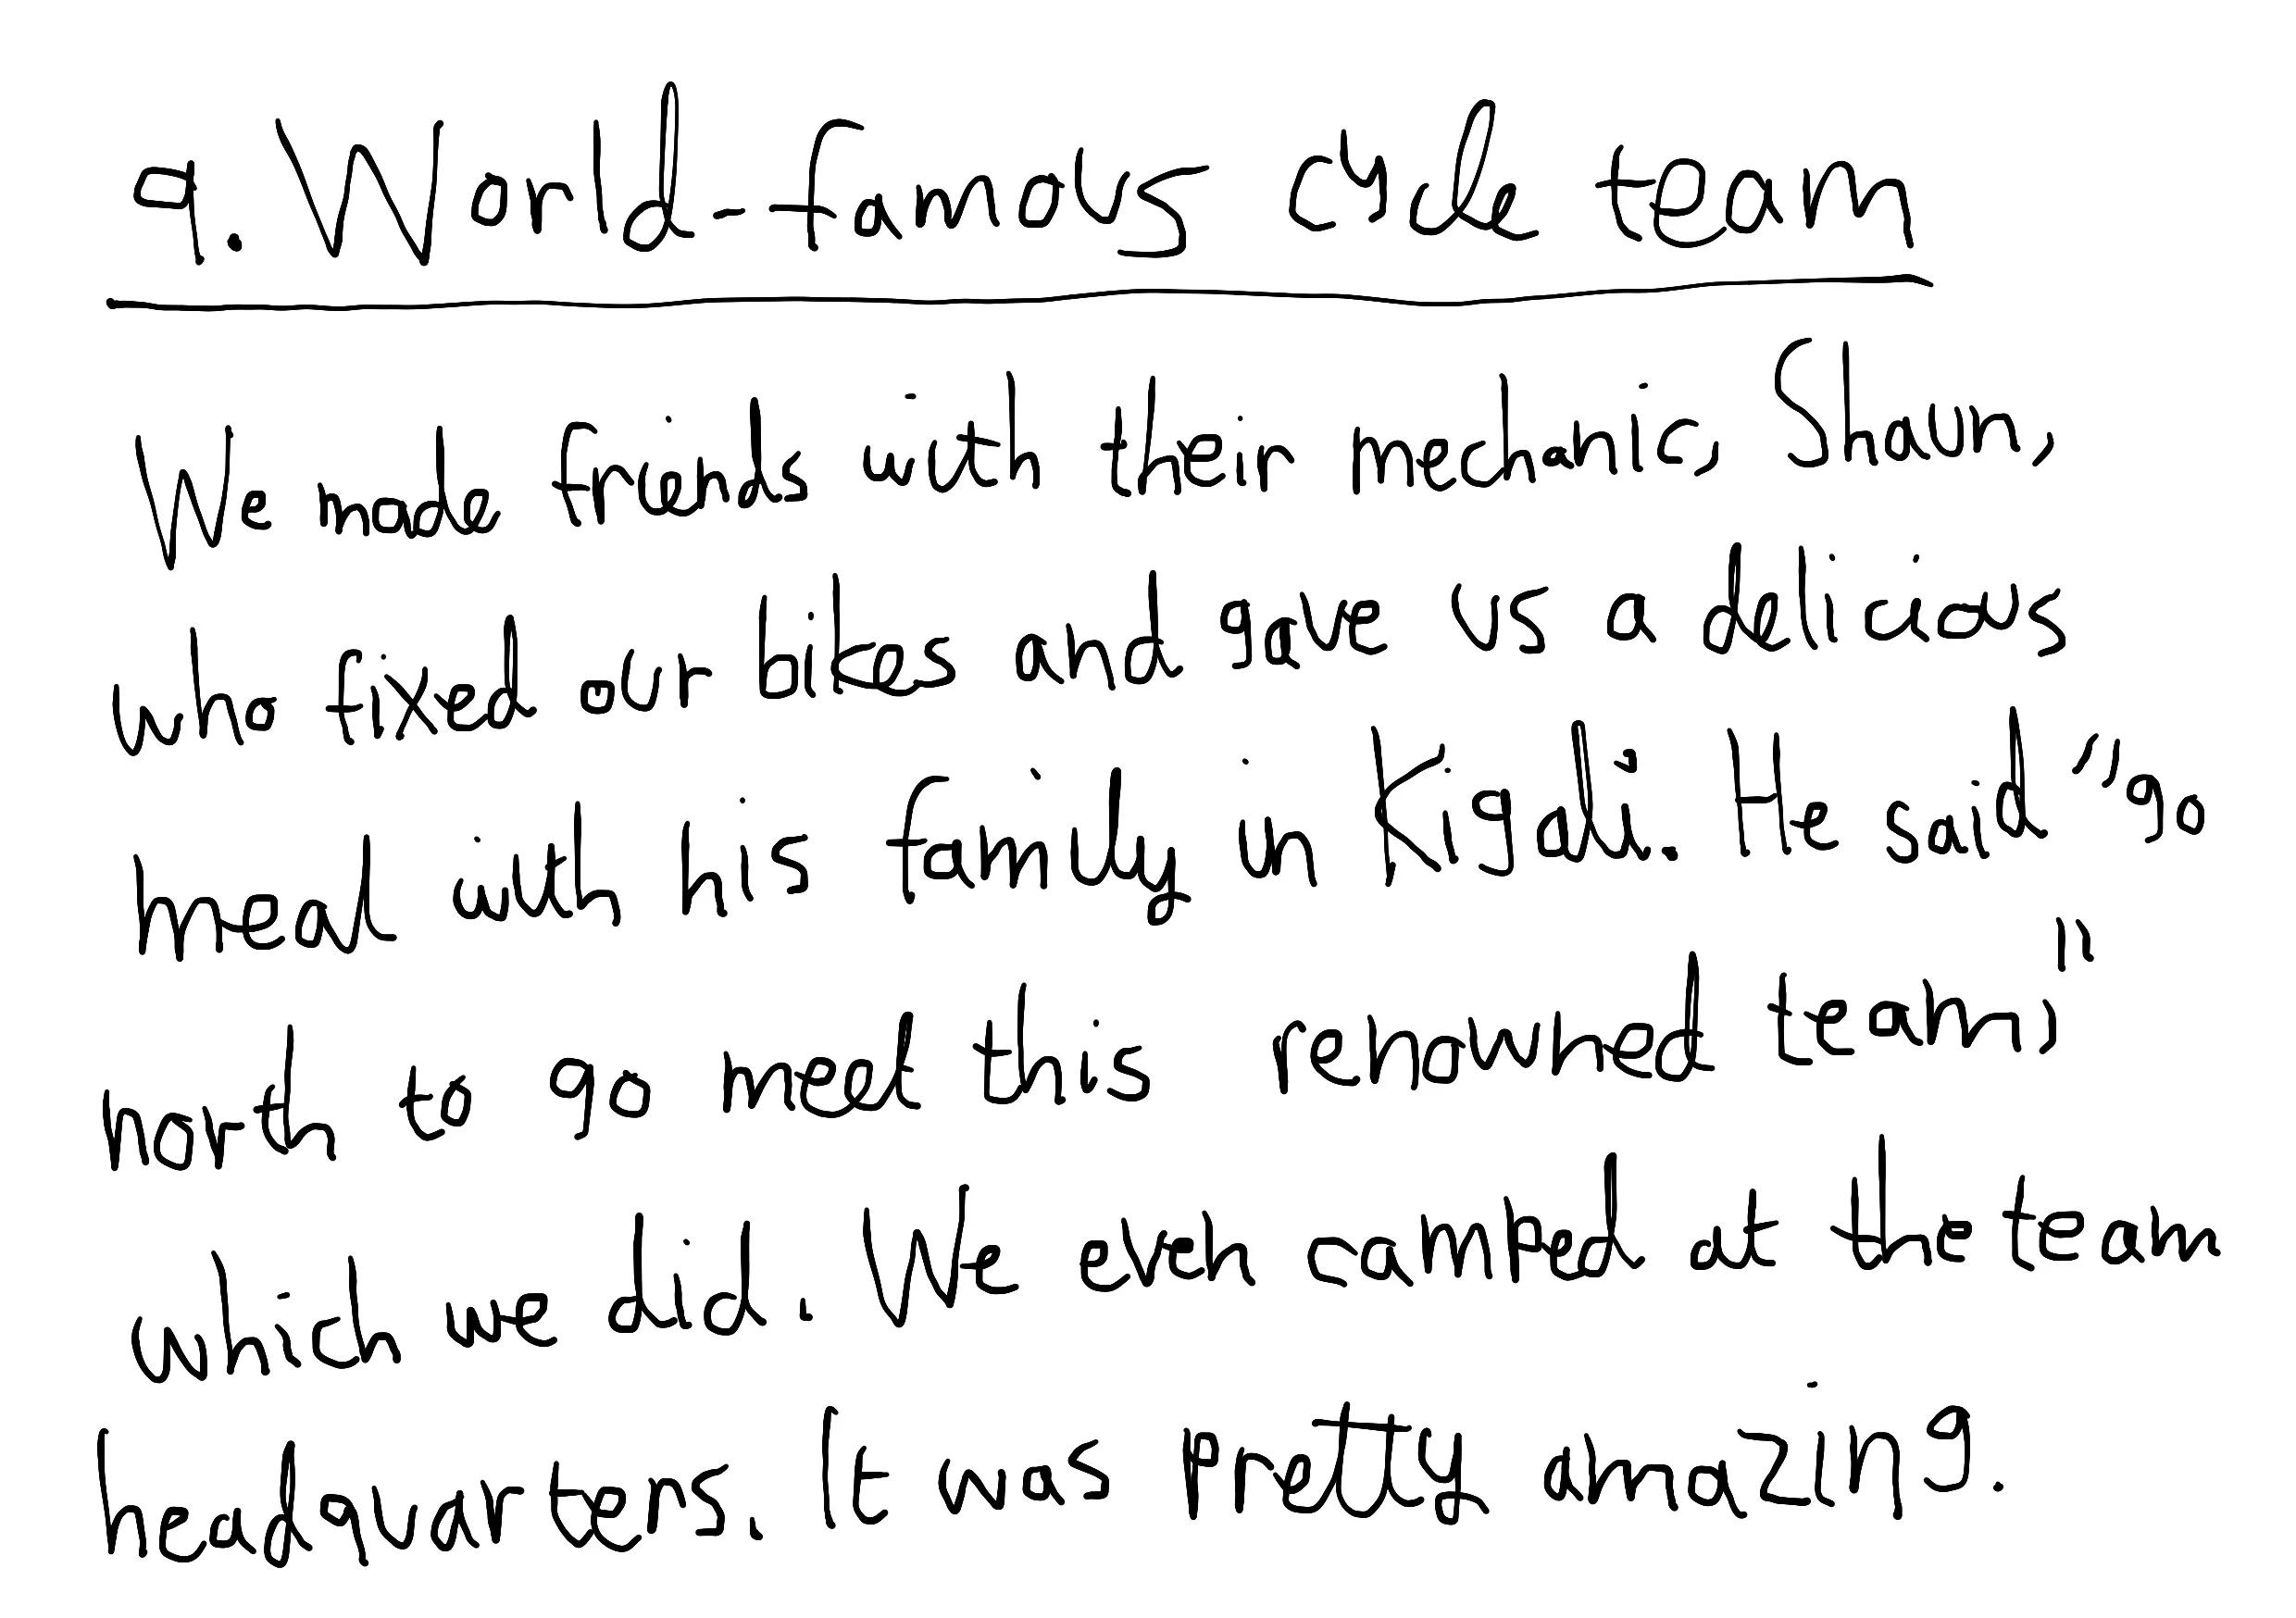 9. World-famous cycle team
We made friends with their mechanic, Shaun,
who fixed our bikes and gave us a delicious
meal with his family in Kigali. He said "go
north to go meet this renowned team,"
which we did. We even camped at the team
headquarters. It was pretty amazing.